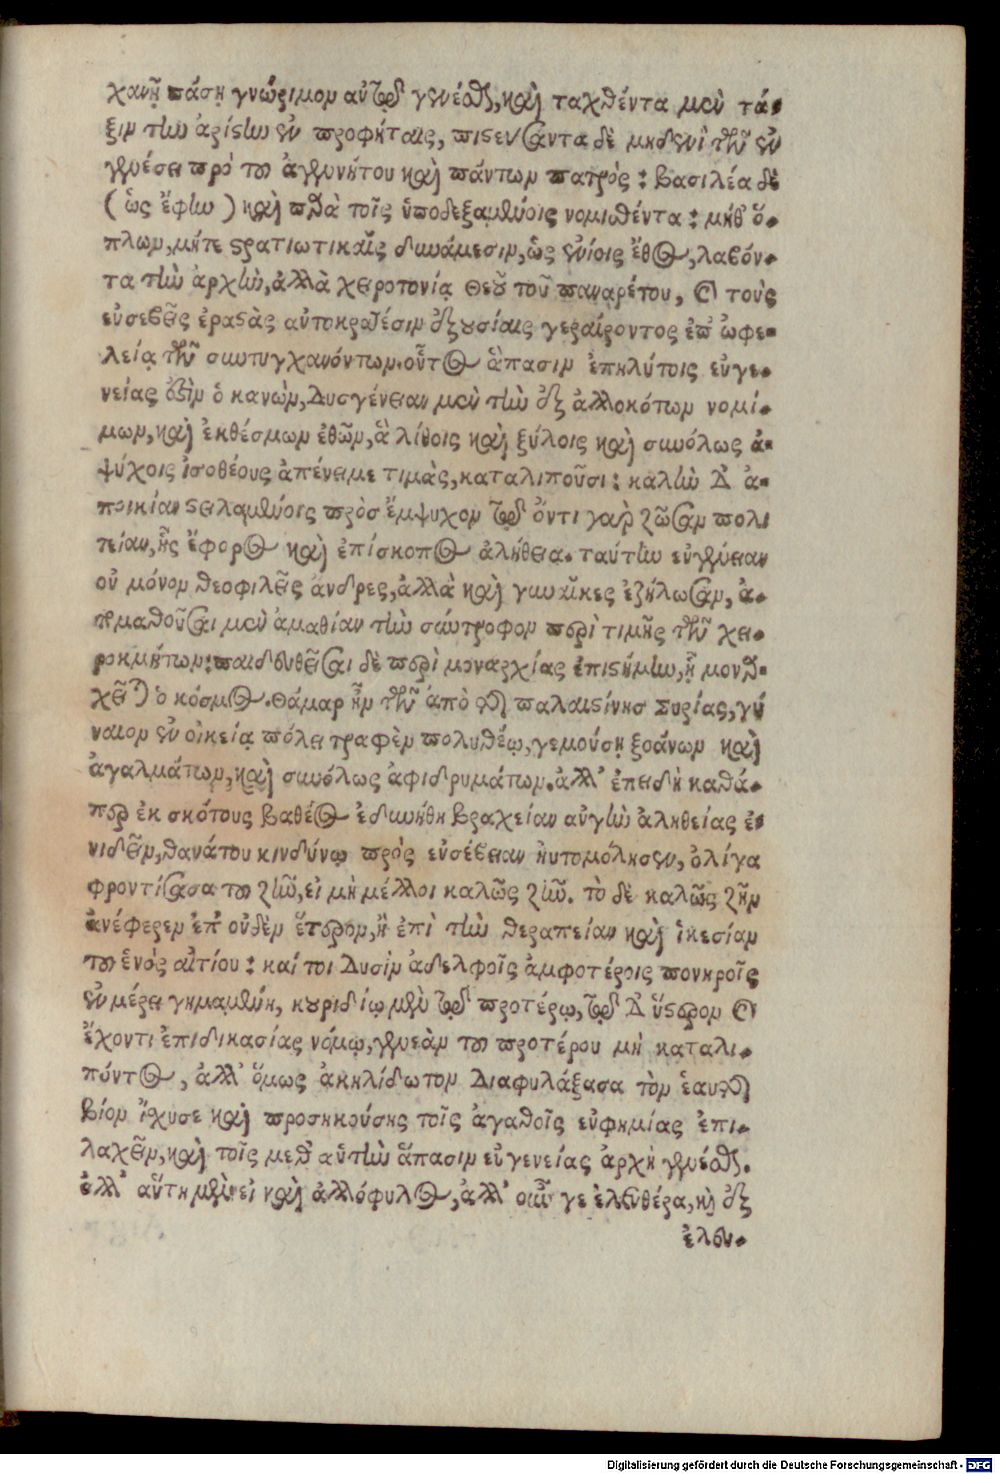 χανῇ πάσῃ γνώριμον αὐτῷ γενέσθαι, καὶ ταχθέντα μὲν τά-
ξιν τὴν ἀρίστην ἐν προφήταις, πιστεύσαντα δὲ μηδενὶ τῶν ἐν
γενέσει πρὸ τοῦ ἀγεννήτου καὶ πάντων πατρός: βασιλέα δὲ
(ὡς ἔφην) καὶ παρὰ τοῖς ὑποδεξαμένοις νομισθέντα: μήθ' ὅ-
πλων, μήτε στρατιωτικαῖς δυνάμεσιν, ὡς ἐνίοις ἔθος, λαβόν-
τα τὴν ἀρχὴν, ἀλλὰ χειροτονίᾳ θεοῦ τοῦ παναρέτου, καὶ τοὺς
εὐσεβεῖς ἐραστὰς αὐτοκρατέσιν ἐξουσίαις γεραίροντος ἐπ' ὠφε-
λείᾳ τῶν συντυγχανόντων. οὗτος ἅπασιν ἐπηλύτοις εὐγε-
νείας ἐστὶν ὁ κανὼν, δυσγένειαν μὲν τὴν ἐξ ἀλλοκότων νομί-
μων, καὶ ἐκθέσμων ἐθῶν, ἃ λίθοις καὶ ξύλοις καὶ συνόλως ἀ-
ψύχοις ἰσοθέους ἀπένειμε τιμὰς, καταλιποῦσι: καλὴν δ' ἀ-
ποικίαν στειλαμένοις πρὸς ἔμψυχον τῷ ὄντι γὰρ ζῶσαν πολι
τείαν, ἧς ἔφορος καὶ ἐπίσκοπος ἀλήθεια. ταύτην εὐγένειαν
οὐ μόνον θεοφιλεῖς ἄνδρες, ἀλλὰ καὶ γυναῖκες ἐζήλωσαν, ἀ-
πομαθοῦσαι μὲν ἀμαθίαν τὴν σύντροφον περὶ τιμῆς τῶν χει-
ροκμήτων: παιδευθεῖσαι δὲ περὶ μοναρχίας ἐπιστήμην, ᾗ μοναρ-
χεῖται ὁ κόσμος. Θάμαρ ἦν τῶν ἀπὸ τῆς παλαιστίνης Συρίας, γύ
ναιον ἐν οἰκείᾳ πόλει τραφὲν πολυθέῳ, γεμούσῃ ξοάνων καὶ
ἀγαλμάτων, καὶ συνόλως ἀφιδρυμάτων. ἀλλ' ἐπειδὴ καθά-
περ ἐκ σκότους βαθέος ἐδυνήθη βραχεῖαν αὐγὴν ἀληθείας ἐ-
νιδεῖν, θανάτου κινδύνῳ πρὸς εὐσέβειαν ηὐτομόλησεν, ὀλίγα
φροντίσασα τοῦ ζῆν, εἰ μὴ μέλλοι καλῶς ζῆν. τὸ δὲ καλῶς ζῆν
ἀνέφερεν ἐπ' οὐδὲν ἕτερον, ἢ ἐπὶ τὴν θεραπείαν καὶ ἱκεσίαν
τοῦ ἑνὸς αἰτίου: καί τοι δυσὶν ἀδελφοῖς ἀμφοτέροις πονηροῖς
ἐν μέρει γημαμένη, κουριδίῳ μὲν τῷ προτέρῳ, τῷ δ' ὕστερον καὶ
ἔχοντι ἐπιδικασίας νόμῳ, γενεὰν τοῦ προτέρου μὴ καταλι-
πόντος, ἀλλ' ὅμως ἀκηλίδωτον διαφυλάξασα τὸν ἑαυτῆς
βίον ἴσχυσε καὶ προσηκούσης τοῖς ἀγαθοῖς εὐφημίας ἐπι-
λαχεῖν, καὶ τοῖς μεθ' αὑτὴν ἅπασιν εὐγενείας ἀρχὴ γενέσθαι.
ἀλλ' αὕτη μὲν εἰ καὶ ἀλλόφυλος, ἀλλ' οὖν γε ἐλευθέρα, καὶ ἐξ
ἐλευ-
Digitalisierung gefördert durch die Deutsche Forschungsgemeinschaft - DFG